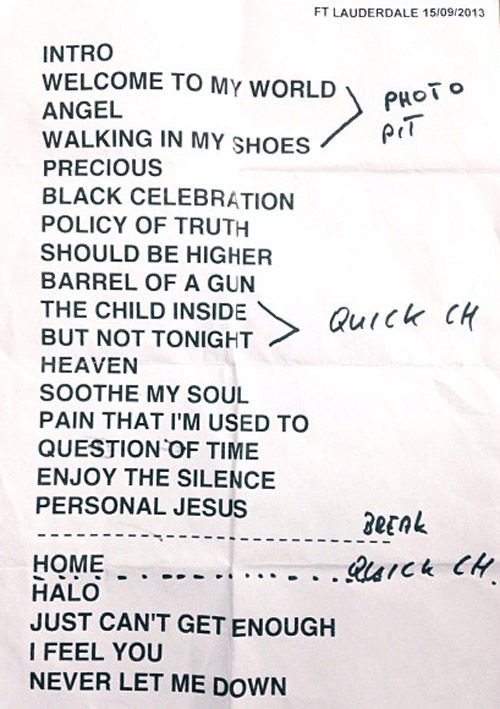 FT LAUDERDALE 15/09/2013
INTRO
WELCOME TO MY WORLD
ANGEL
WALKING IN MY SHOES
PHOTO
PIT
PRECIOUS
BLACK CELEBRATION
POLICY OF TRUTH
SHOULD BE HIGHER
BARREL OF A GUN
THE CHILD INSIDE
BUT NOT TONIGHT
QUICK CH
HEAVEN
SOOTHE MY SOUL
PAIN THAT I'M USED TO
QUESTION OF TIME
ENJOY THE SILENCE
PERSONAL JESUS
BREAK
HOME
QUICK CH.
HALO
JUST CAN'T GET ENOUGH
I FEEL YOU
NEVER LET ME DOWN